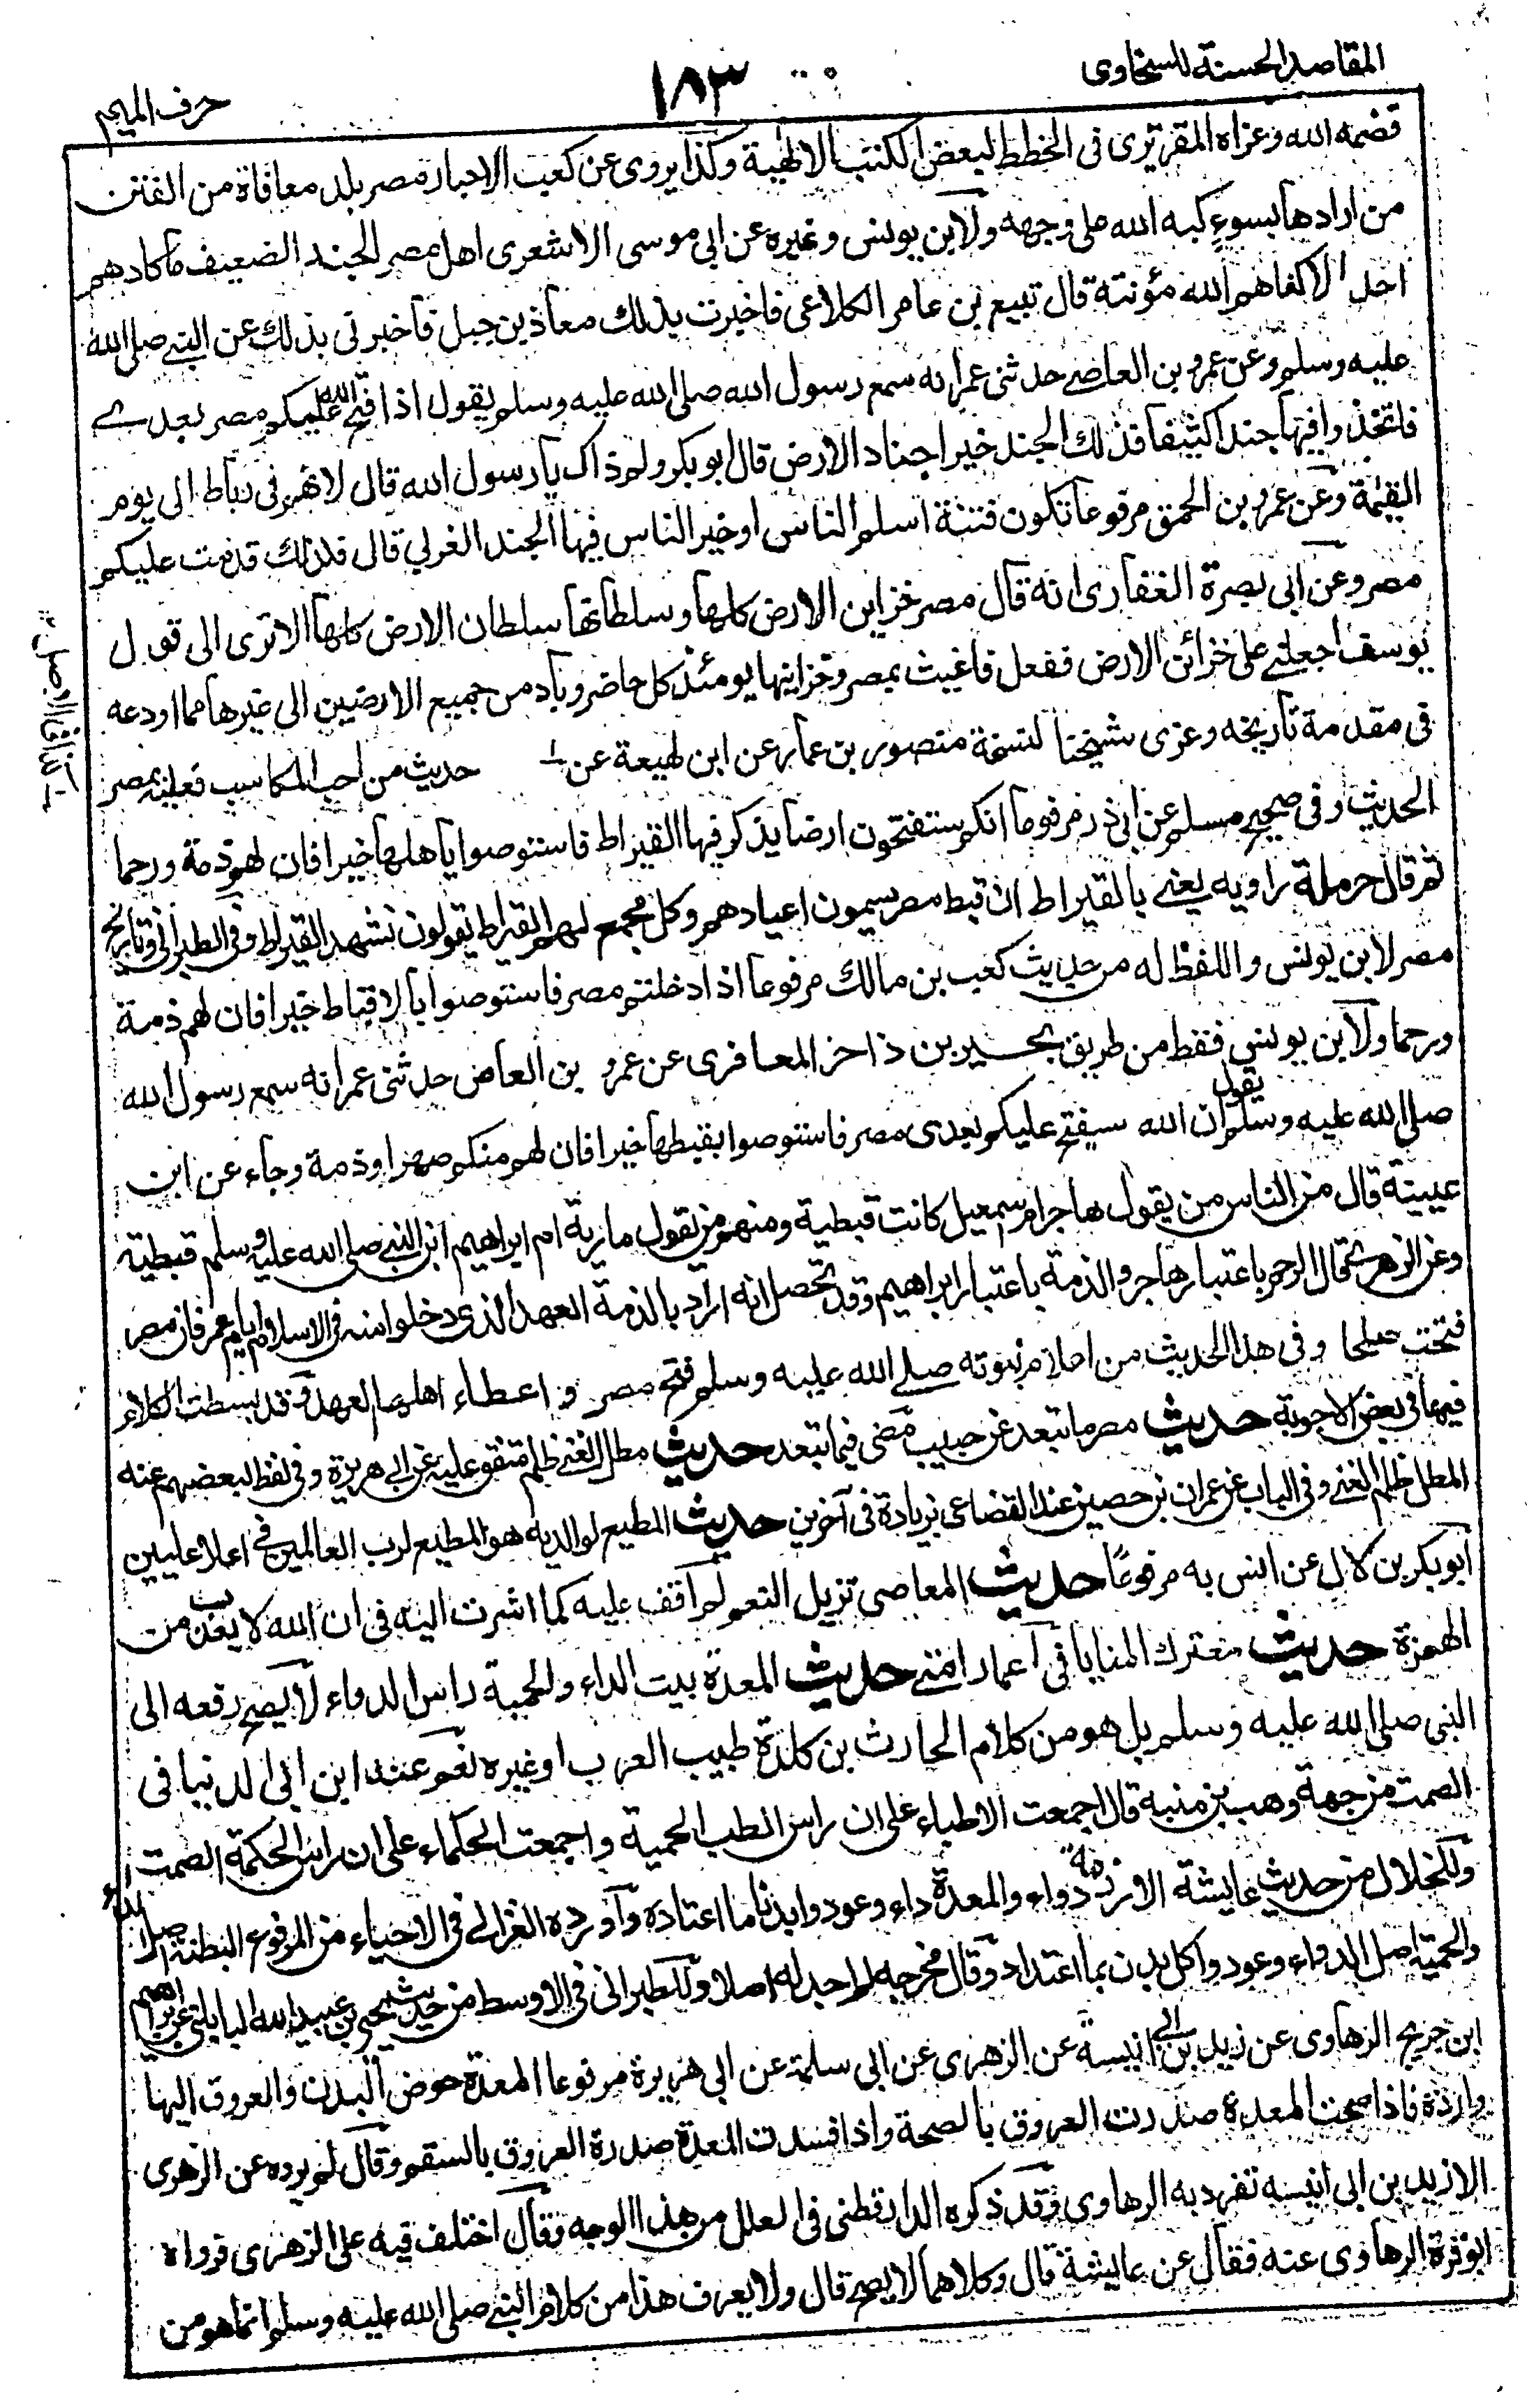 المقاصد الحسنة للسخاوى
١٨٣
حرف الميم
قضمه الله وعزاه المقريزى فى الخطط لبعض الكتب الالهية وكذا يروى عن كعب الاحبار مصر بلد معافاة من الفتن
من ارادها بسوء كبه الله على وجهه ولابن يونس وغيره عن ابى موسى الاشعرى اهل مصر الجند الضعيف ما كادهم
احد الا كفاهم الله مؤنته قال تبيع بن عامر الكلاعى فاخبرت بذلك معاذ بن جبل فاخبرنى بذلك عن النبى صلى الله
عليه وسلم وعن عمرو بن العاص حدثنى عمر انه سمع رسول الله صلى الله عليه وسلم يقول اذا فتح الله عليكم مصر بعدى
فاتخذوا فيها جندا كثيفا فذلك الجند خير اجناد الارض قال ابو بكر ولم ذاك يا رسول الله قال لانهم فى رباط الى يوم
القيمة وعن عمرو بن الحمق مرفوعا تكون فتنة اسلم الناس او خير الناس فيها الجند الغربى قال فلذلك قدمت عليكم
مصر وعن ابى بصرة الغفارى انه قال مصر خزاين الارض كلها وسلطانها سلطان الارض كلها الا ترى الى قول
يوسف اجعلنى على خزائن الارض ففعل فاغيث بمصر وخزاينها يومئذ كل حاضر وباد من جميع الارضين الى غيرها مما اودعه
فى مقدمة تاريخه وعزى شيخنا لنسخة منصور بن عمار عن ابن لهيعة عن حديث من احب المكاسب فعليه بمصر
الحديث وفى صحيح مسلم عن ابى ذر مرفوعا انكم ستفتحون ارضا يذكر فيها القيراط فاستوصوا باهلها خيرا فان لهم ذمة ورحما
ثم قال حرملة راويه يعنى بالقيراط ان قبط مصر يسمون اعيادهم وكل مجمع لهم القيراط يقولون نشهد القيراط وفى الطبرانى وتاريخ
مصر لابن يونس واللفظ له من حديث كعب بن مالك مرفوعا اذا دخلتم مصر فاستوصوا بالاقباط خيرا فان لهم ذمة
ورحما ولابن يونس فقط من طريق بحير بن ذاخر المعافرى عن عمرو بن العاص حدثنى عمر انه سمع رسول الله
صلى الله عليه وسلم يقول ان الله سيفتح عليكم بعدى مصر فاستوصوا بقبطها خيرا فان لهم منكم صهرا وذمة وجاء عن ابن
عيينة قال من الناس من يقول هاجر ام اسمعيل كانت قبطية ومنهم من يقول مارية ام ابراهيم ابن النبى صلى الله عليه وسلم قبطية
وعن الزهرى قال الرحم باعتبار هاجر والذمة باعتبار ابراهيم وقد تحصل انه اراد بالذمة العهد الذى دخلوا منه فى الاسلام ايام عمر فان مصر
فتحت صلحا وفى هذا الحديث من اعلام نبوته صلى الله عليه وسلم فتح مصر واعطاء اهلها العهد وقد بسطت الكلام
فيها فى بعض الاجوبة حديث مصر ما تبعد عن حبيب مضى فيما تبعد حديث مطل الغنى ظلم متفق عليه عن ابى هريرة وفى لفظ لبعضهم عنه
المطل ظلم الغنى وفى الباب عن عمران بن حصين عند القضاعى بزيادة فى آخرين حديث المطيع لوالديه هو المطيع لرب العالمين فى اعلا عليين
ابو بكر بن لال عن انس به مرفوعًا حديث المعاصى تزيل النعم لم اقف عليه كما اشرت اليه فى ان الله لا يعذب من
الهمزة حديث معترك المنايا فى اعمار امتى حديث المعدة بيت الداء والحمية راس الدواء لا يصح رفعه الى
النبى صلى الله عليه وسلم بل هو من كلام الحارث بن كلدة طبيب العرب او غيره نعم عند ابن ابى الدنيا فى
الصمت من جهة وهب بن منبه قال اجمعت الاطباء على ان راس الطب الحمية واجمعت الحكماء على ان راس الحكمة الصمت
وللخلال من حديث عايشة الازمة دواء والمعدة داء وعودوا بدنا ما اعتاده واورده الغزالى فى الاحياء من المرفوع البطنة اصل الداء
والحمية اصل الدواء وعودوا كل بدن بما اعتاد وقال مخرجه لم اجد له اصلا وللطبرانى فى الاوسط من حديث يحيى بن عبد الله البابلتى عن ابراهيم
ابن جريج الرهاوى عن زيد بن ابى انيسة عن الزهرى عن ابى سلمة عن ابى هريرة مرفوعا المعدة حوض البدن والعروق اليها
واردة فاذا صحت المعدة صدرت العروق بالصحة واذا فسدت المعدة صدرة العروق بالسقم وقال لم يروه عن الزهرى
الا زيد بن ابى انيسه تفرد به الرهاوى وقد ذكره الدارقطنى فى العلل من هذا الوجه وقال اختلف فيه على الزهرى فرواه
ابو قرة الرهاوى عنه فقال عن عايشة قال وكلاهما لا يصح قال ولا يعرف هذا من كلام النبى صلى الله عليه وسلم انما هو من